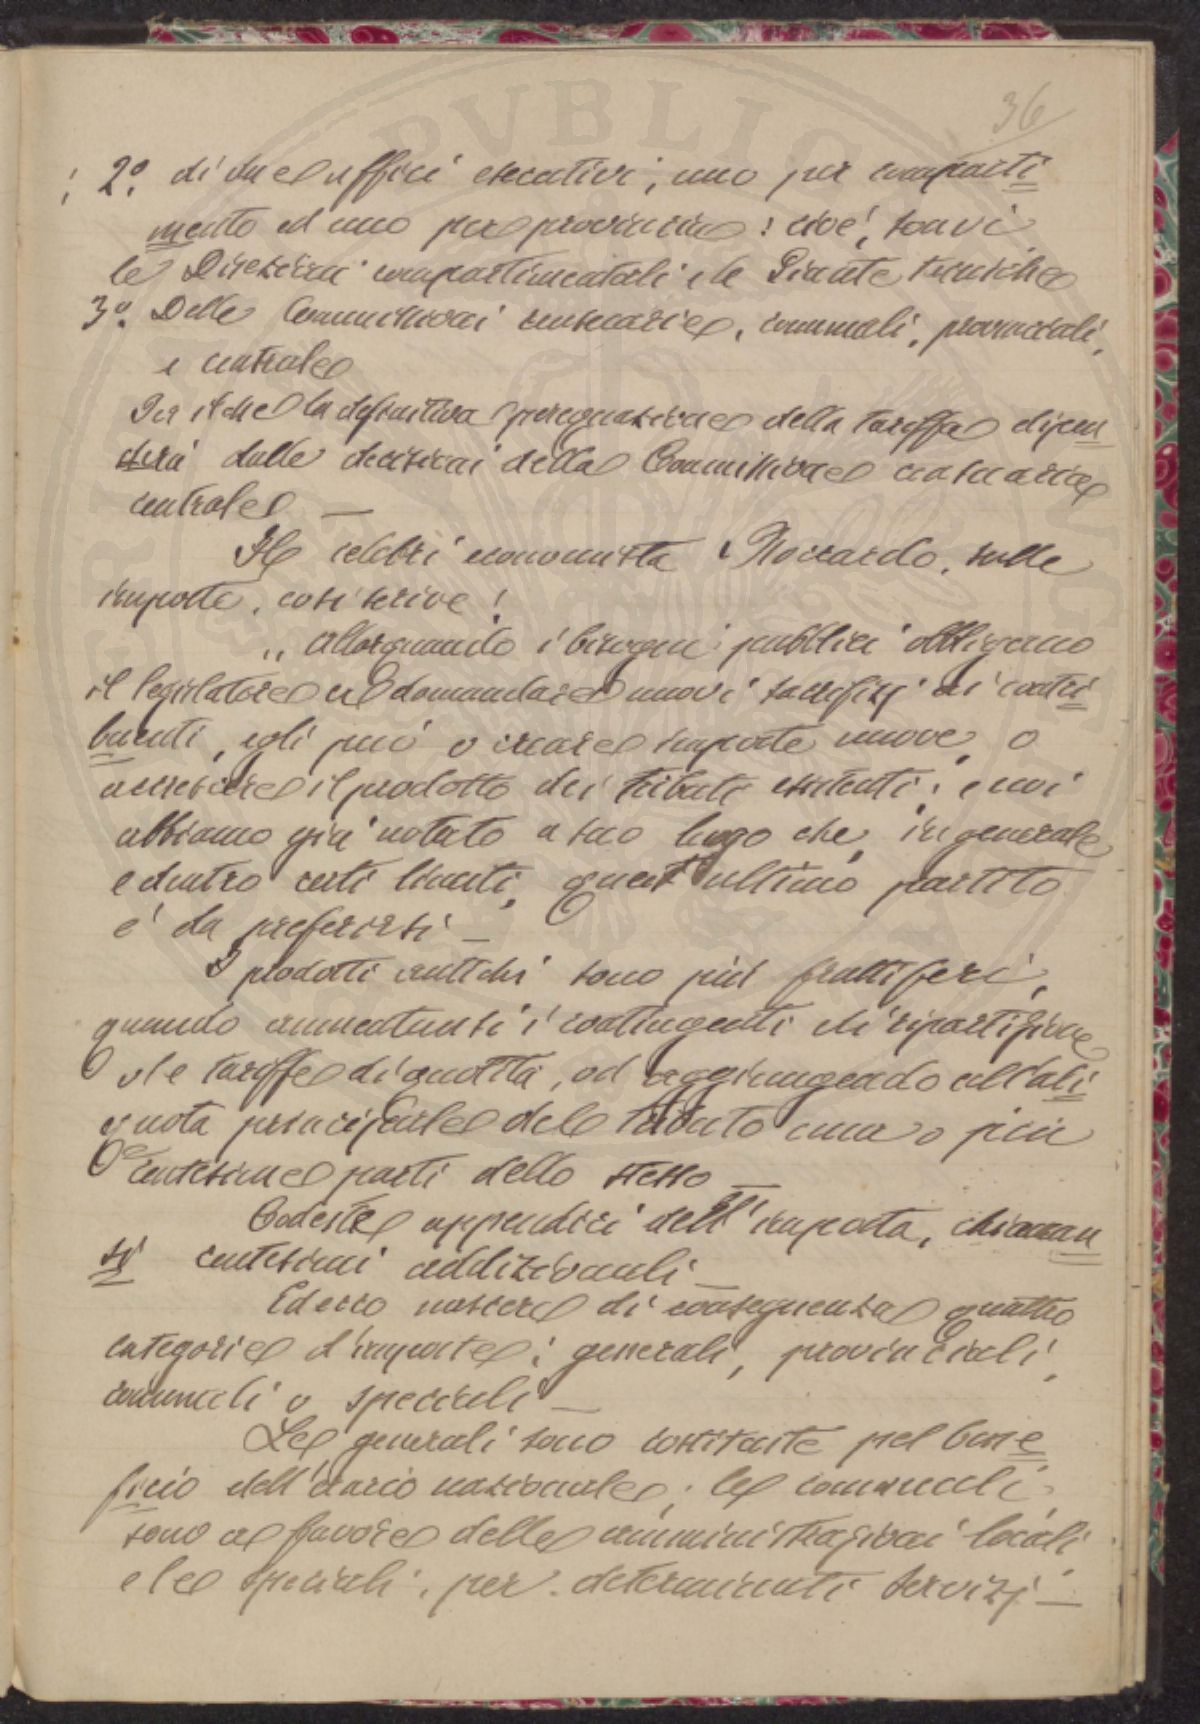 36
2º. di due uffici esecutivi, uno per comparti
mento ed uno per provincia: cioè, sonvi
le Direzioni compartimentali e le Giunte tecniche
3º. Delle Commissioni censuarie, comunali, provinciali,
e centrale
Per il che la definitiva perequazione della tariffa dipen
derà dalle decisioni della Commissione censuaria
centrale —
Il celebri economista Boccardo, sulle
imposte, così scrive:
„ Allorquando i bisogni pubblici obbligano
il legislatore a domandare nuovi sacrifizj ai contri
buenti, egli può o creare imposte nuove, o
accrescere il prodotto dei tributi esistenti; e noi
abbiamo già notato a suo luogo che, in generale
e dentro certi limiti, quest'ultimo partito
è da preferirsi —
I prodotti antichi sono più fruttiferi,
quando aumentansi i contingenti di ripartizione
o le tariffe di quotità, od aggiungendo all'ali
quota principale del tributo una o più
centesime parti dello stesso —
Codeste appendici dell'imposta, chiaman
si centesimi addizionali —
Ed ecco nascere di conseguenza quattro
categorie d'imposte: generali, provinciali,
comunali o speciali —
Le generali sono costituite pel bene
ficio dell'erario nazionale; le comunali
sono a favore delle amministrazioni locali
e le speciali, per determinati servizj —